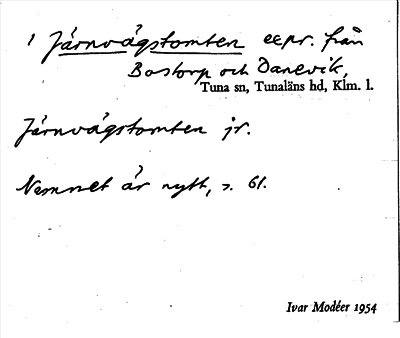 1 Järnvägstomten expr. från
Bostorp och Danevik,
Tuna sn, Tunaläns hd, Klm. l.
Järnvägstomten jr.
Namnet är nytt, s. 61.
Ivar Modéer 1954